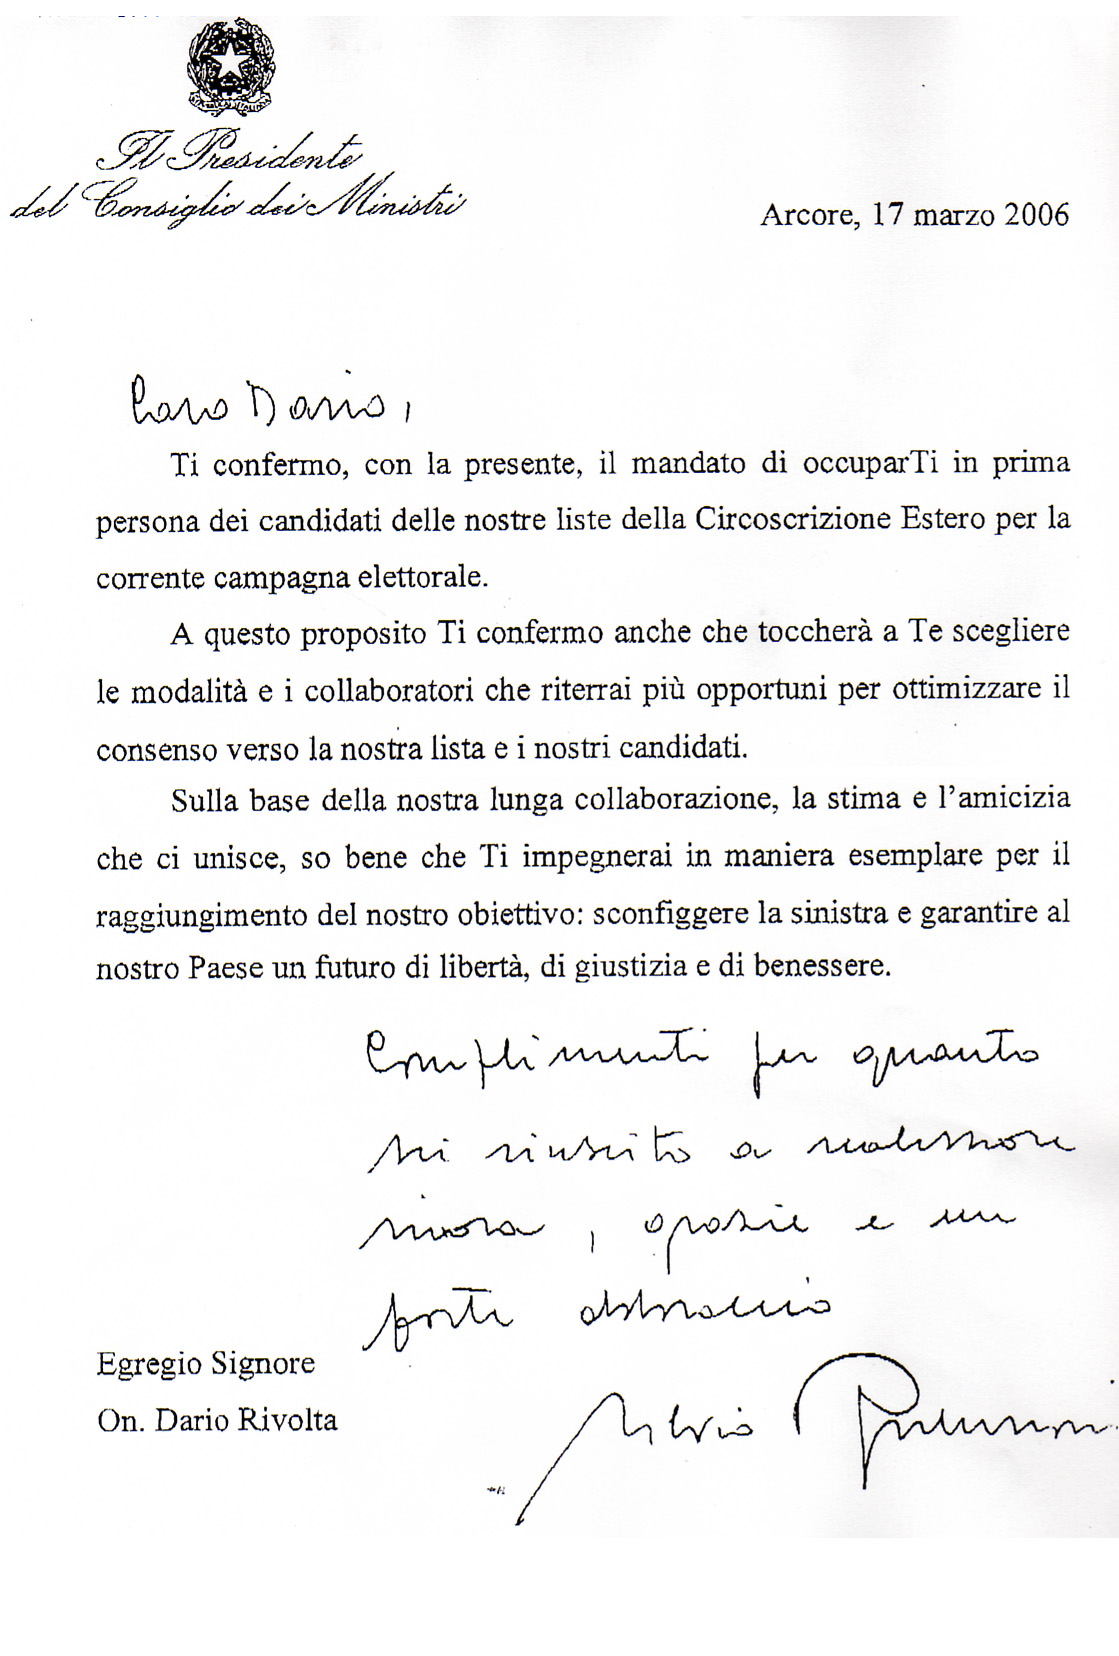 Il Presidente
del Consiglio dei Ministri
Arcore, 17 marzo 2006
Caro Dario,
Ti confermo, con la presente, il mandato di occuparTi in prima
persona dei candidati delle nostre liste della Circoscrizione Estero per la
corrente campagna elettorale.
A questo proposito Ti confermo anche che toccherà a Te scegliere
le modalità e i collaboratori che riterrai più opportuni per ottimizzare il
consenso verso la nostra lista e i nostri candidati.
Sulla base della nostra lunga collaborazione, la stima e l’amicizia
che ci unisce, so bene che Ti impegnerai in maniera esemplare per il
raggiungimento del nostro obiettivo: sconfiggere la sinistra e garantire al
nostro Paese un futuro di libertà, di giustizia e di benessere.
Complimenti per quanto
sei riuscito a realizzare
sinora, grazie e un
forte abbraccio
Egregio Signore
On. Dario Rivolta
Silvio Berlusconi